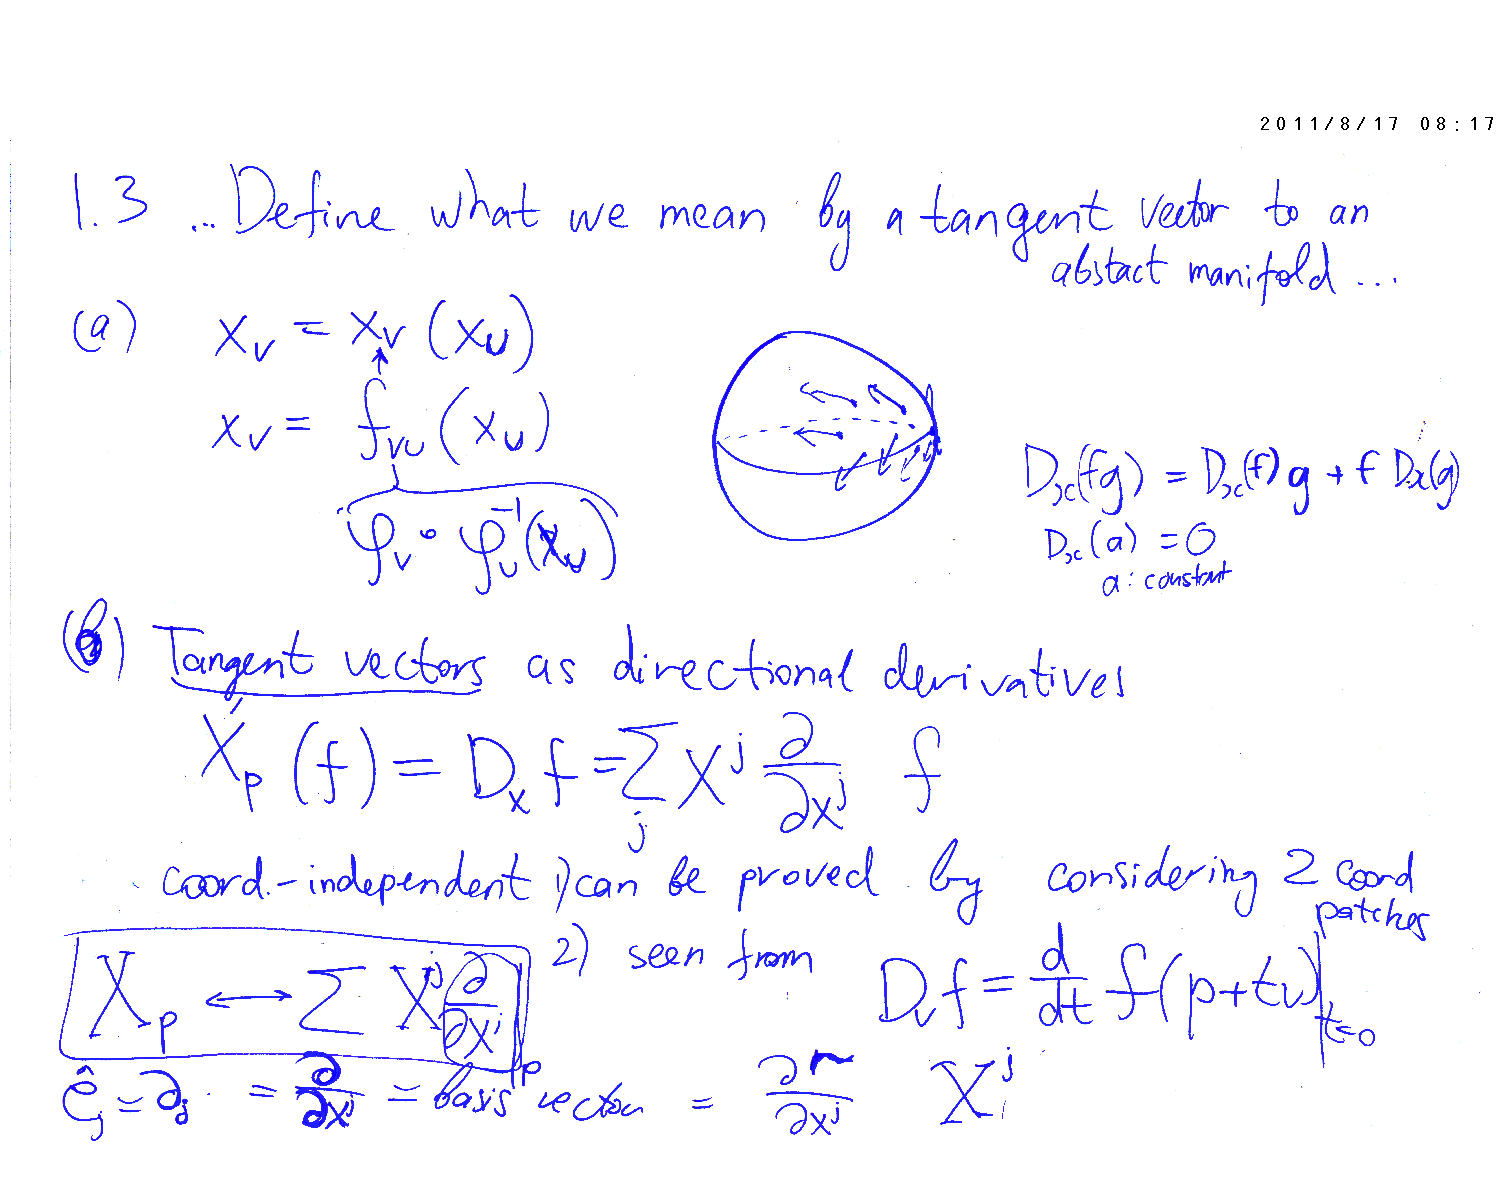 2011/8/17 08:17
1.3 ...Define what we mean by a tangent vector to an
abstact manifold ...
(a) x_V = x_V (x_U)
x_V = f_VU (x_U)
φ_V ∘ φ_U^-1 (x_U)
D_x(fg) = D_x(f) g + f D_x(g)
D_x(a) = 0
a: constant
(b) Tangent vectors as directional derivatives
X_p (f) = D_x f = Σ_j X^j ∂/∂x^j f
coord.-independent 1) can be proved by considering 2 coord
patches
2) seen from D_v f = d/dt f(p+tv)|_t=0
X_p ↔ Σ X^j ∂/∂x^j |_p
ê_j = ∂_j = ∂/∂x^j = basis vector = ∂r/∂x^j X^j